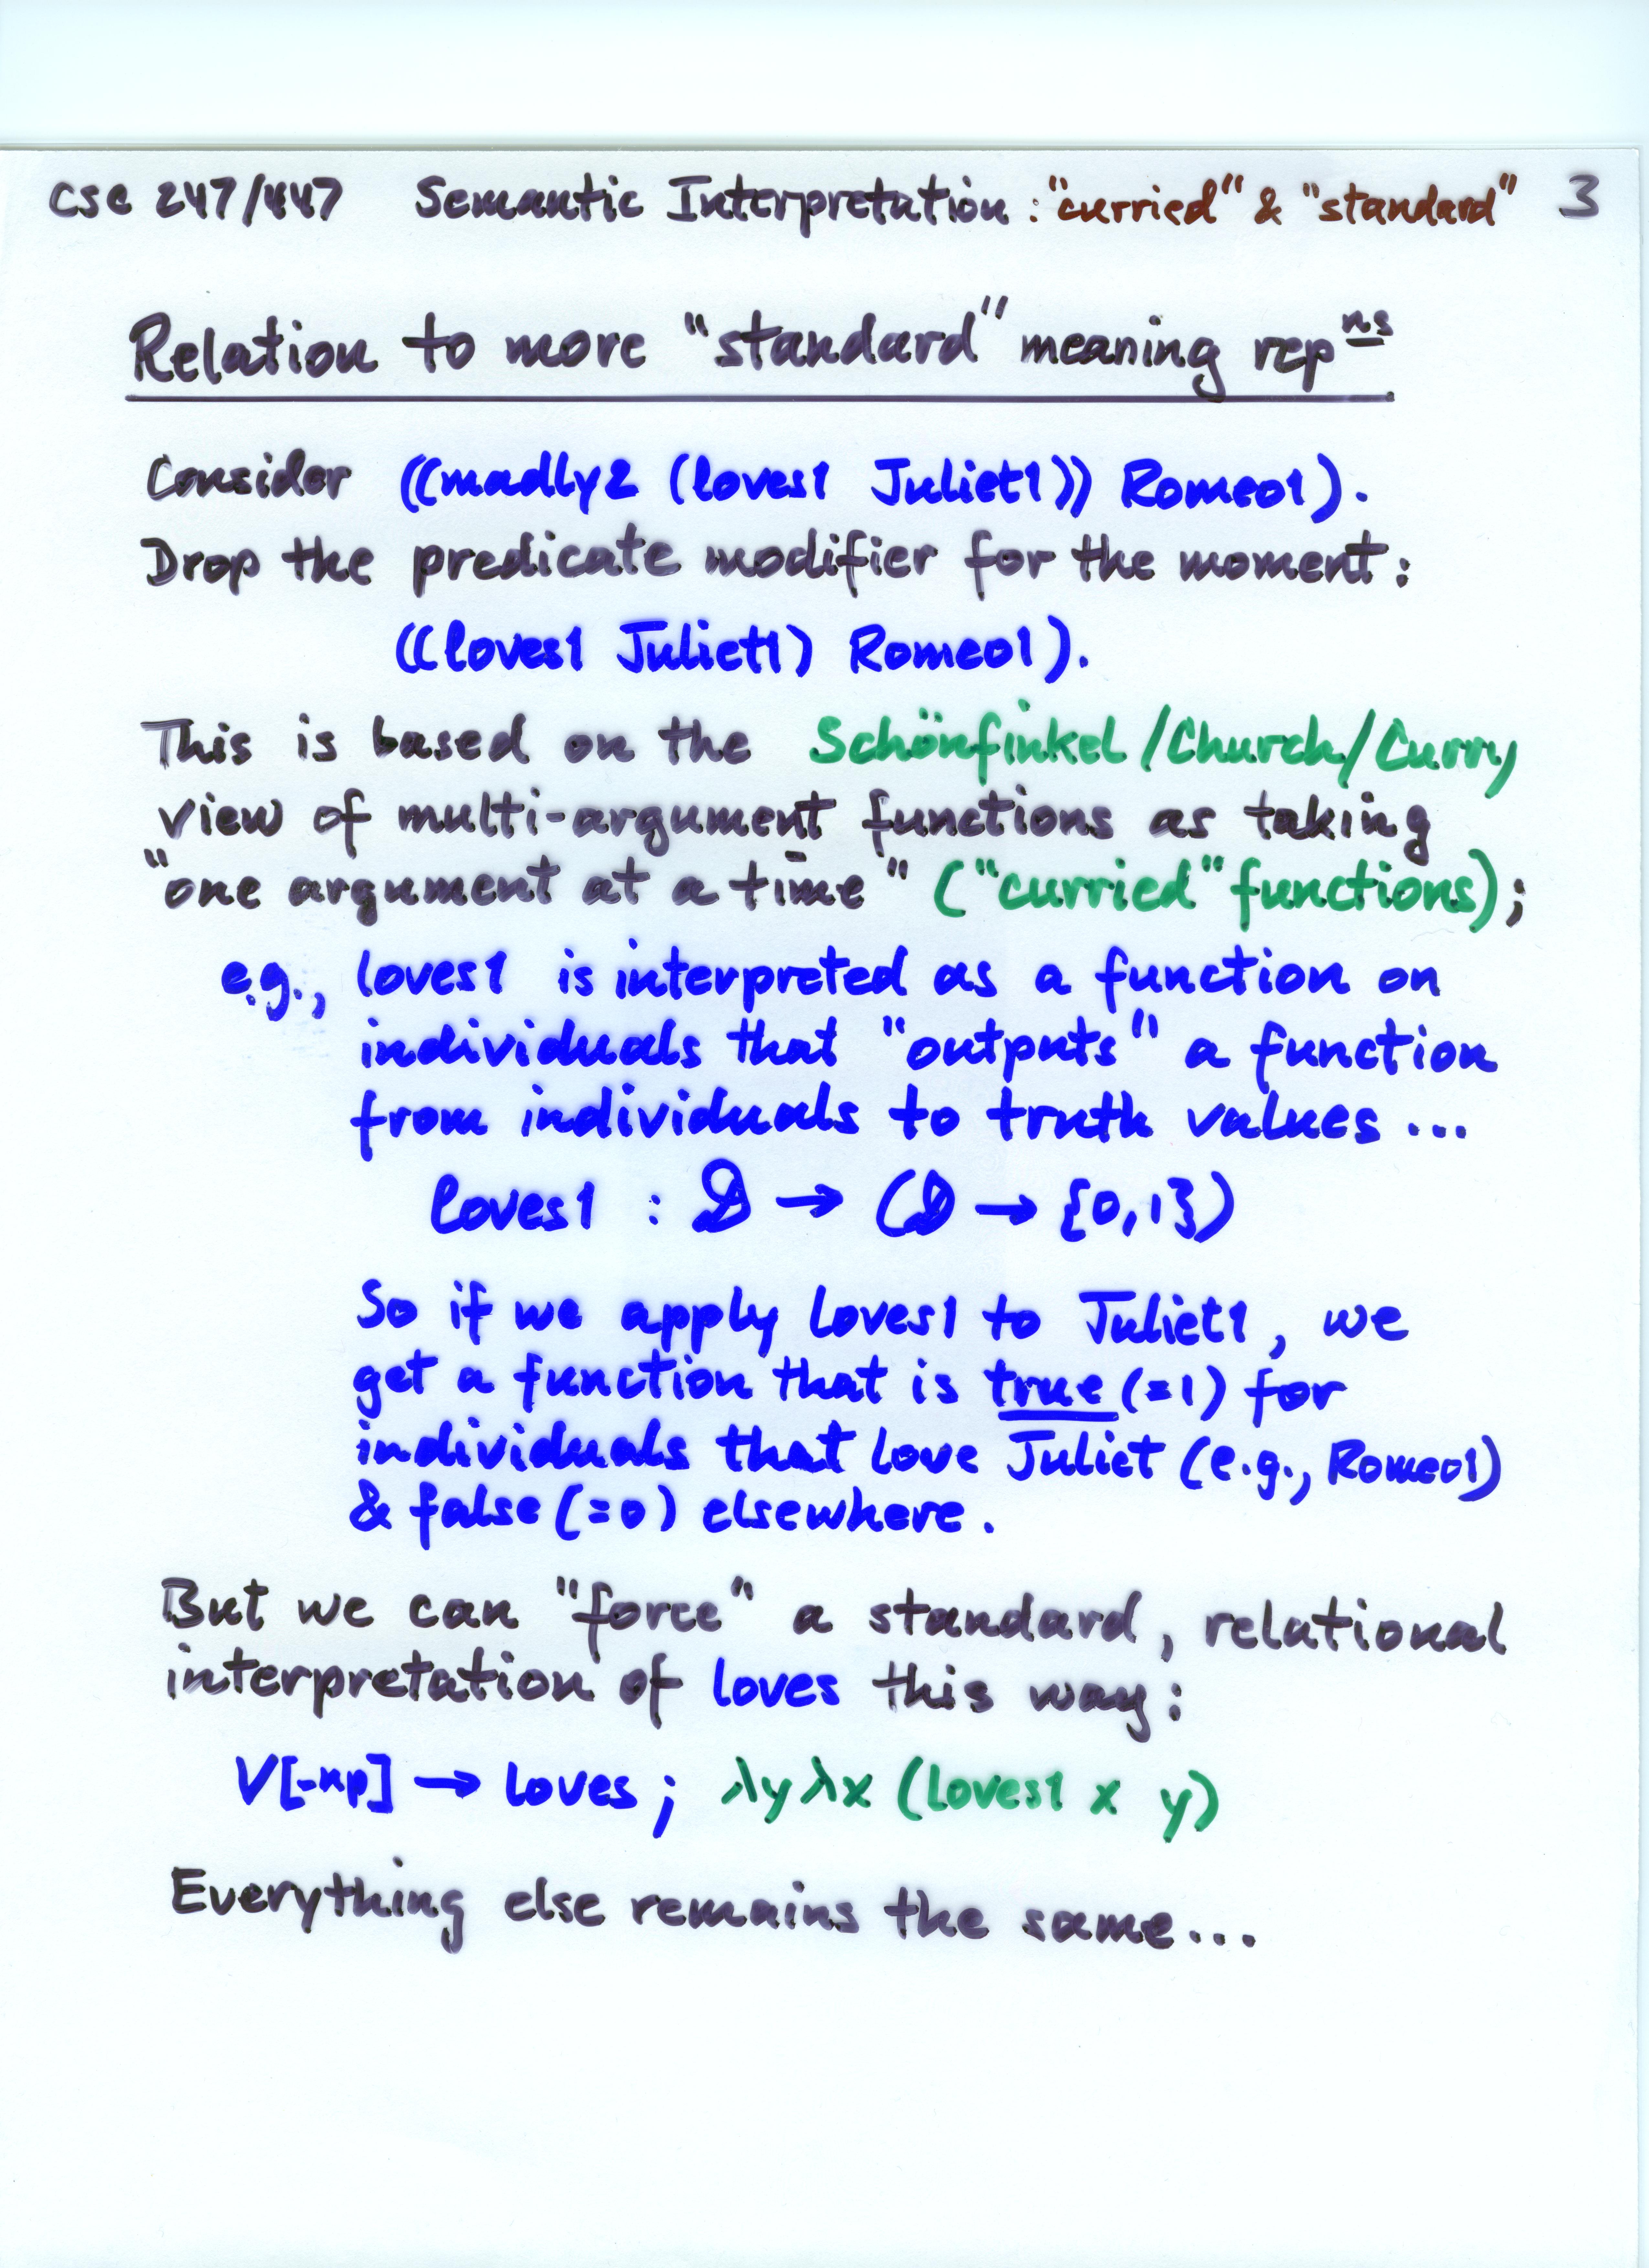 CSC 247/447 Semantic Interpretation: "curried" & "standard" 3
Relation to more "standard" meaning repⁿˢ
Consider ((madly2 (loves1 Juliet1)) Romeo1).
Drop the predicate modifier for the moment:
((loves1 Juliet1) Romeo1).
This is based on the Schönfinkel/Church/Curry
view of multi-argument functions as taking
"one argument at a time" ("curried" functions);
e.g., loves1 is interpreted as a function on
individuals that "outputs" a function
from individuals to truth values...
loves1 : 𝒟 → (𝒟 → {0,1})
So if we apply loves1 to Juliet1, we
get a function that is true (=1) for
individuals that love Juliet (e.g., Romeo1)
& false (=0) elsewhere.
But we can "force" a standard, relational
interpretation of loves this way:
V[-np] → loves; λy λx (loves1 x y)
Everything else remains the same...